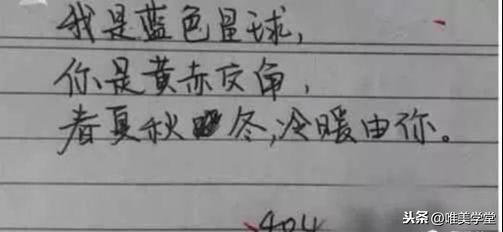 我是蓝色星球,
你是黄赤交角,
春夏秋冬,冷暖由你。
404
头条 @唯美学堂